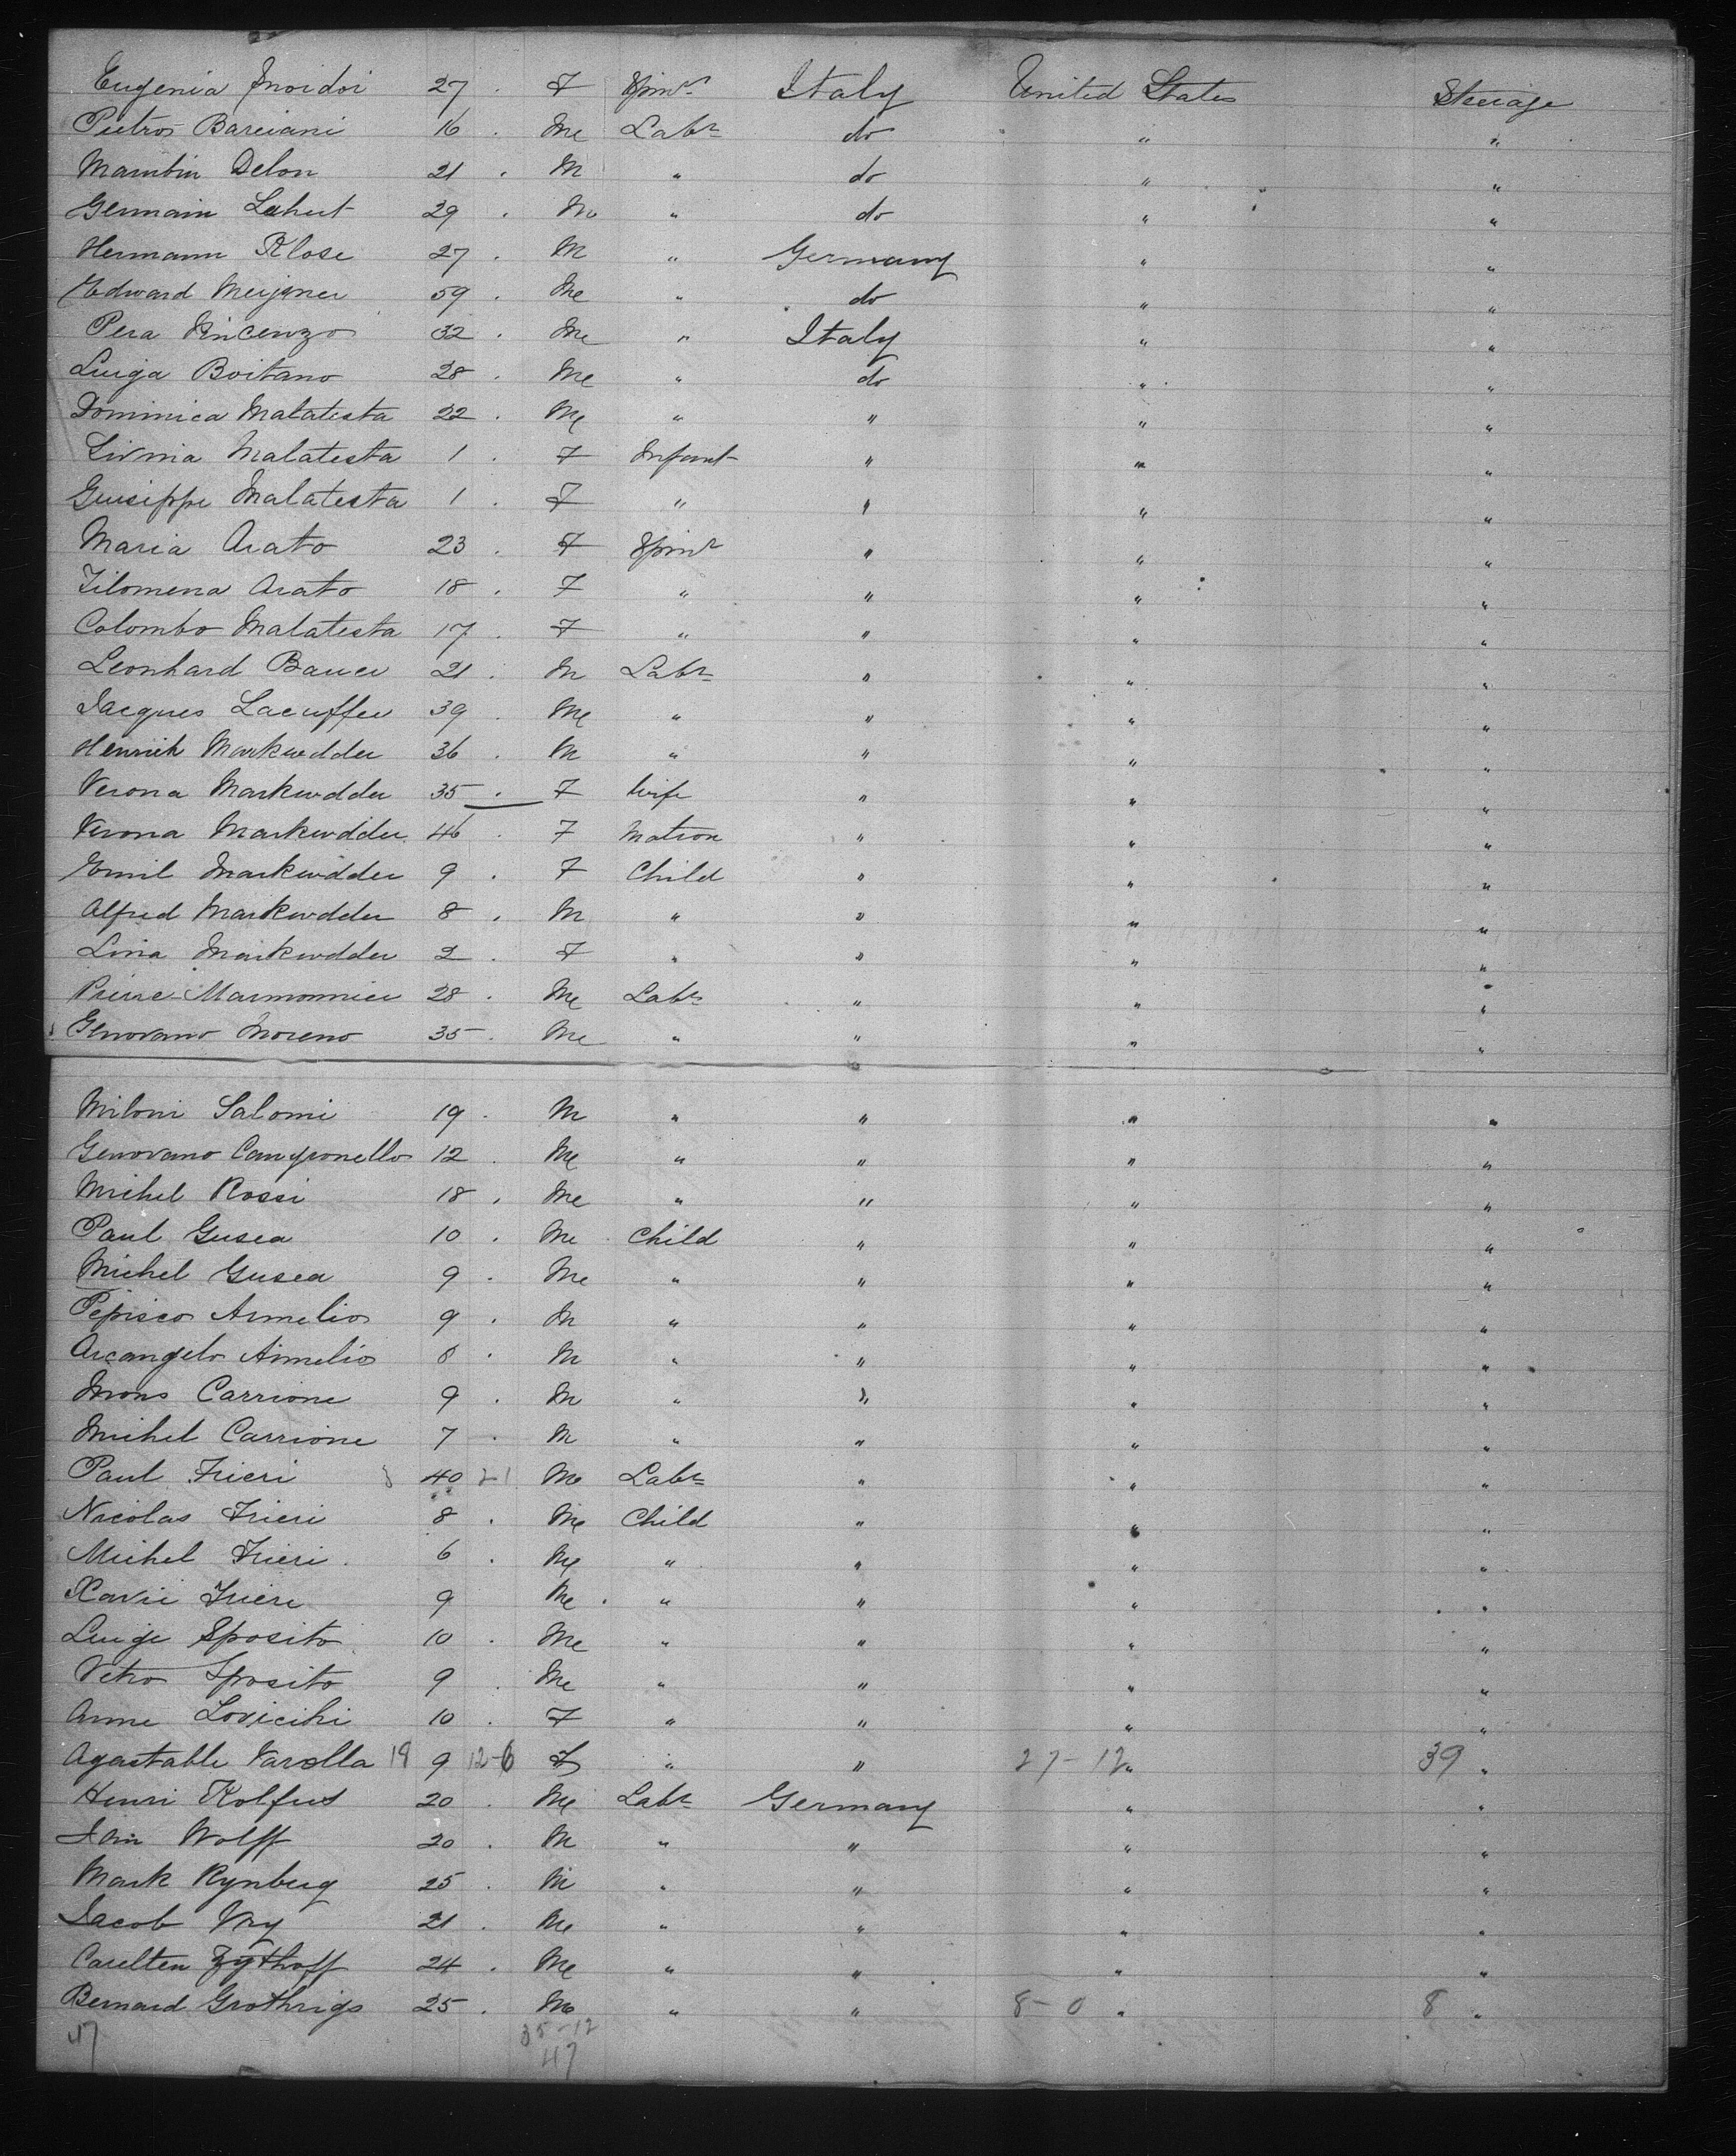 Eugenia Moidoi 27 . F Spinr Italy United States Steerage
Pietro Barciani 16 . M Labr do " "
Mambin Delon 21 . M " do " "
Germain Lahut 29 . M " do " "
Hermann Klose 27 . M " Germany " "
Edward Meijner 59 . M " do " "
Pera Vincenzo 32 . M " Italy " "
Luiga Boitano 28 . M " do " "
Dominica Malatesta 22 . M " " " "
Livinia Malatesta 1 . F Infant " " "
Guiseppe Malatesta 1 . F " " " "
Maria Arato 23 . F Spinr " " "
Filomena Arato 18 . F " " " "
Colombo Malatesta 17 . F " " " "
Leonhard Bauer 21 . M Labr " " "
Jacques Lacuffer 39 . M " " " "
Henrich Markwdder 36 . M " " " "
Verona Markwdder 35 . F Wife " " "
Verona Markwdder 46 . F Matron " " "
Emil Markwdder 9 . F Child " " "
Alfred Markwdder 8 . M " " " "
Lina Markwdder 2 . F " " " "
Pierre Marmonnier 28 . M Labr " " "
Genovano Moreno 35 . M " " " "
Miloni Salomi 19 . M " " " "
Genovano Campronello 12 . M " " " "
Michel Rossi 18 . M " " " "
Paul Gusea 10 . M Child " " "
Michel Gusea 9 . M " " " "
Pepisco Armelio 9 . M " " " "
Arcangelo Armelio 8 . M " " " "
Mons Carrione 9 . M " " " "
Michel Carrione 7 . M " " " "
Paul Frieri 40 21 M Labr " " "
Nicolas Frieri 8 . M Child " " "
Michel Frieri 6 . M " " " "
Xavie Frieri 9 M " " " "
Luige Sposito 10 . M " " " "
Vetro Sposito 9 . M " " " "
Anne Lovicihi 10 . F " " " "
Agastable Varolla 19 9 12-6 F " " 27-12 " 39 "
Henri Kolfus 20 . M Labr Germany " "
Wolff 20 . M " " " "
Mark Rynberg 25 . M " " " "
Jacob Vry 21 . M " " " "
Carelten Zythoff 24 . M " " " "
Bernard Grothrigs 25 . M " " 8-0 " 8 "
47 35-12
47